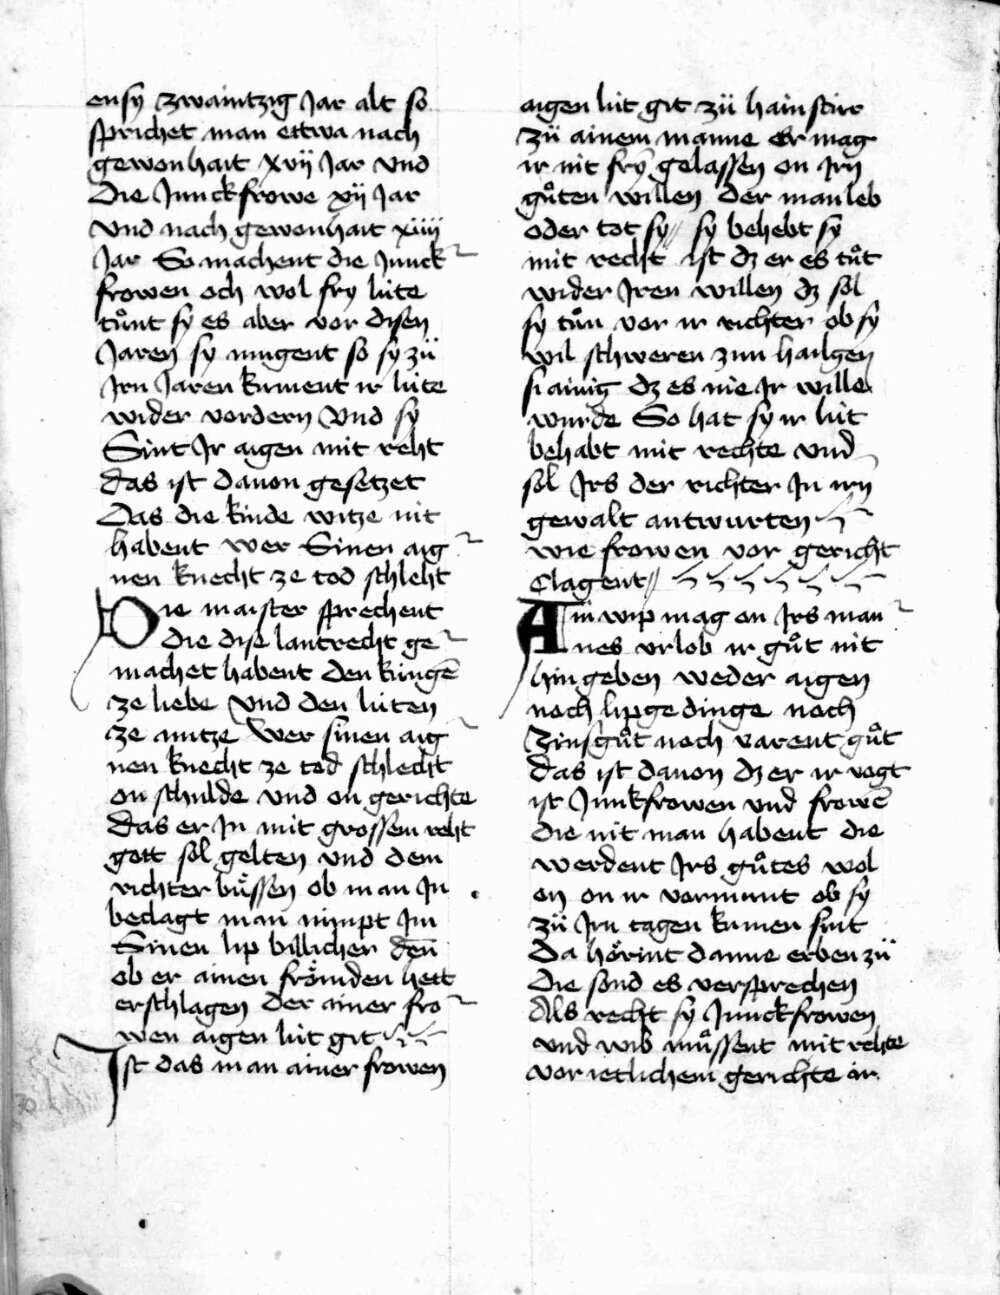 ensy zwaintzig Jar alt so
sprichet man ettwa nach
gewonhait xvij Jar Vnd
die Junckfrowe xij Jar
Vnd nach gewonhait xiiij
Jar So machent die Junck
frowen och wol fry lüte
tůnt sy es aber vor disen
Jaren sy mugent so sy zü
Jrn Jaren kument ir lüte
wider vordern Vnd sy
Sint Jr aigen mit reht
das ist dauon gesetzet
Das die kinde witze nit
habent wer Sinen aig
nen knecht ze tod schleht
Die maister sprechent
die dise lantrecht ge
machet habent den küngē
ze liebe Vnd den lüten
ze nutze Wer sinen aig
nen knecht ze tod schlecht
on schulde vnd on gerichte
das er Jn mit grossem reht
gott sol gelten vnd dem
richter bůssen ob man Jn
beclagt man nimpt Jm
Sinen lip billicher den
ob er ainen frömden hett
erschlagen der ainer fro
wen aigen lüt git
Jst das man ainer frowen
aigen lüt git zü hainstür
zü ainem manne Er mag
ir nit fry gelassen on Jrn
gůten willen der man leb
oder tot sy // sy behebt sy
mit recht ist dz er es tůt
wider Jren willen dz sol
sy tůn vor ir richter ob sy
wil schweren zun hailgen
si ainig dz es nie Jr wille
wurde So hat sy ir lüt
behabt mit rechte vnd
sol Jrs der richter Jn irn
gewalt antwurten
wie frowen vor gericht
Clagent //
Ain wip mag on Jrs man
nes vrlob ir gůt nit
hin geben weder aigen
noch lipgedinge noch
Zinsgůt noch varent gůt
das ist dauon dz er ir vogt
ist Junkfrowen vnd frowē
die nit man habent die
werdent Jrs gůtes wol
on on ir vormunt ob sy
zü Jrn tagen kumen sint
Da hörint danne erben zü
die sond es versprechen
Als recht sy Junckfrowen
vnd wib můssent mit rehte
vor ietlichem gerichte ir